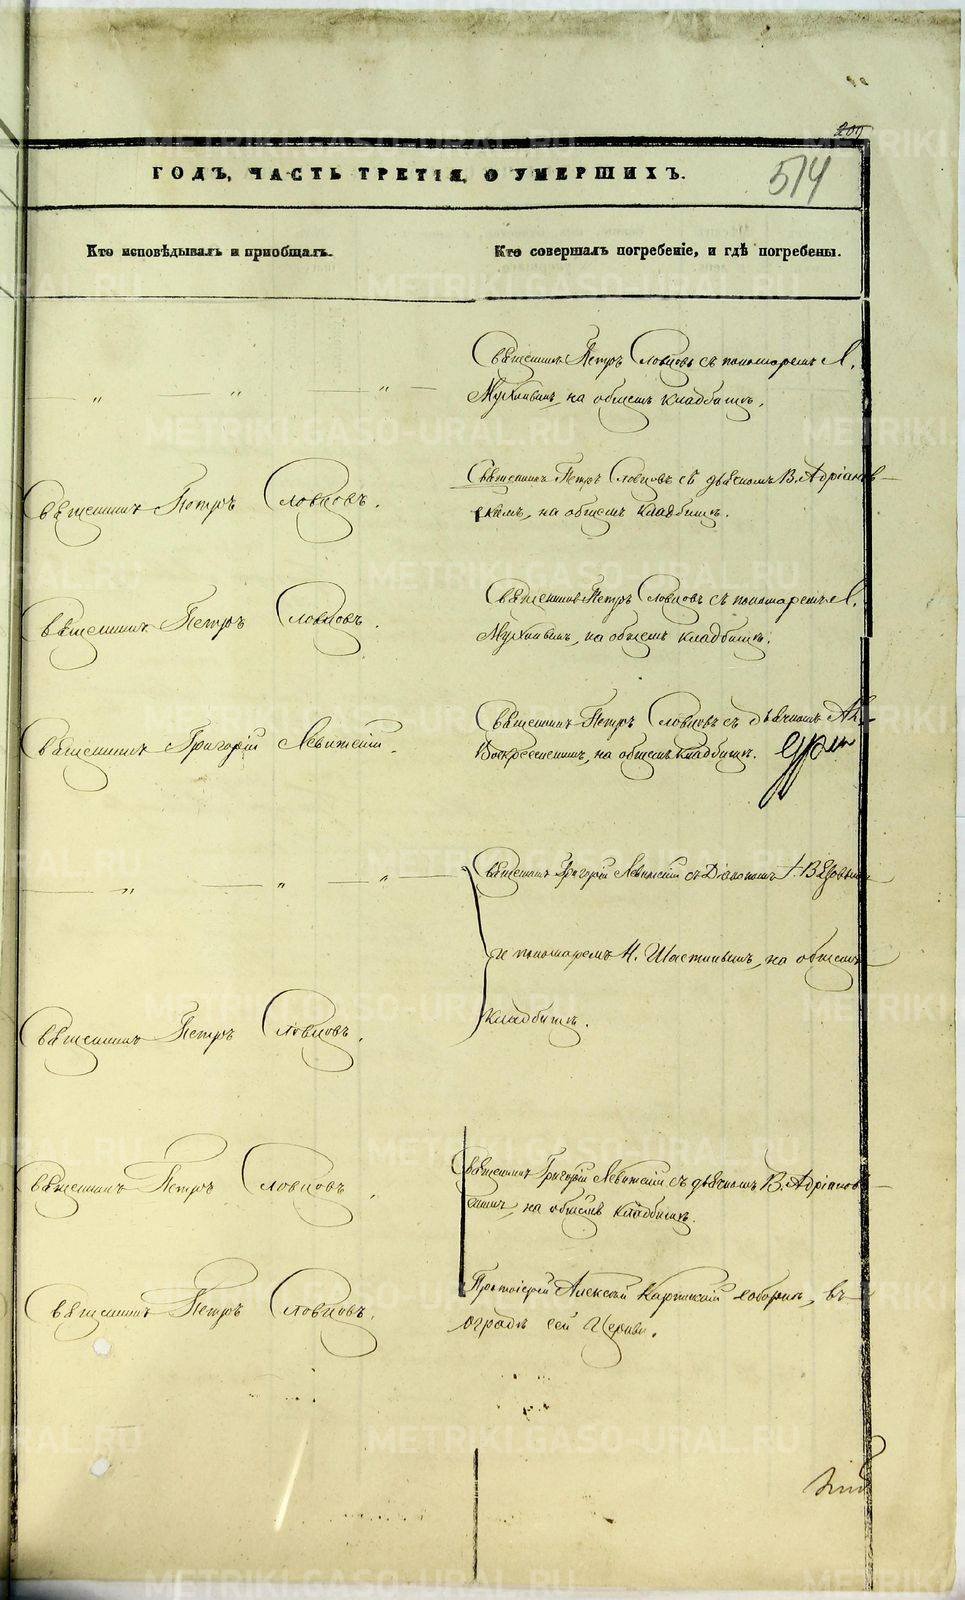 209
ГОДЪ, ЧАСТЬ ТРЕТІЯ, О УМЕРШИХЪ.
514
Кто исповѣдывалъ и пріобщалъ.
Кто совершалъ погребеніе, и гдѣ погребены.
— " — " — " —
Священникъ Петръ Словцовъ съ пономаремъ
на общемъ кладбищѣ.
Священникъ Петръ Словцовъ.
Священникъ Петръ Словцовъ съ дьячкомъ В. Адріанов-
скимъ, на общемъ кладбищѣ.
Священникъ Петръ Словцовъ.
Священникъ Петръ Словцовъ съ пономаремъ
на общемъ кладбищѣ.
Священникъ Григорій Левитскій.
Священникъ Петръ Словцовъ съ дьячкомъ Ал.
Воскресенскимъ, на общемъ кладбищѣ.
— " — " — " —
Священникъ Григорій Левитскій съ Діакономъ
и пономаремъ Н. на общемъ
кладбищѣ.
Священникъ Петръ Словцовъ.
Священникъ Петръ Словцовъ.
Священникъ Григорій Левитскій съ дьячкомъ В. Адріанов-
скимъ, на общемъ кладбищѣ.
Священникъ Петръ Словцовъ.
Протоіерей Алексѣй Карпинскій соборнѣ, въ
оградѣ сей Церкви.
METRIKI.GASO-URAL.RU